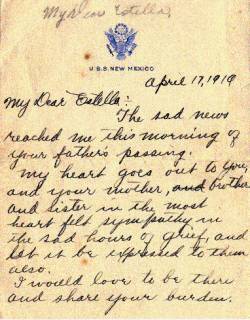 My Dear Estella,
U.S.S. NEW MEXICO
April 17, 1919
My Dear Estella:
The sad news
reached me this morning of
your father's passing.
My heart goes out to you,
and your mother, and brother
and sister in the most
heart felt sympathy in
the sad hours of grief, and
let it be expressed to them
also.
I would love to be there
and share your burden.